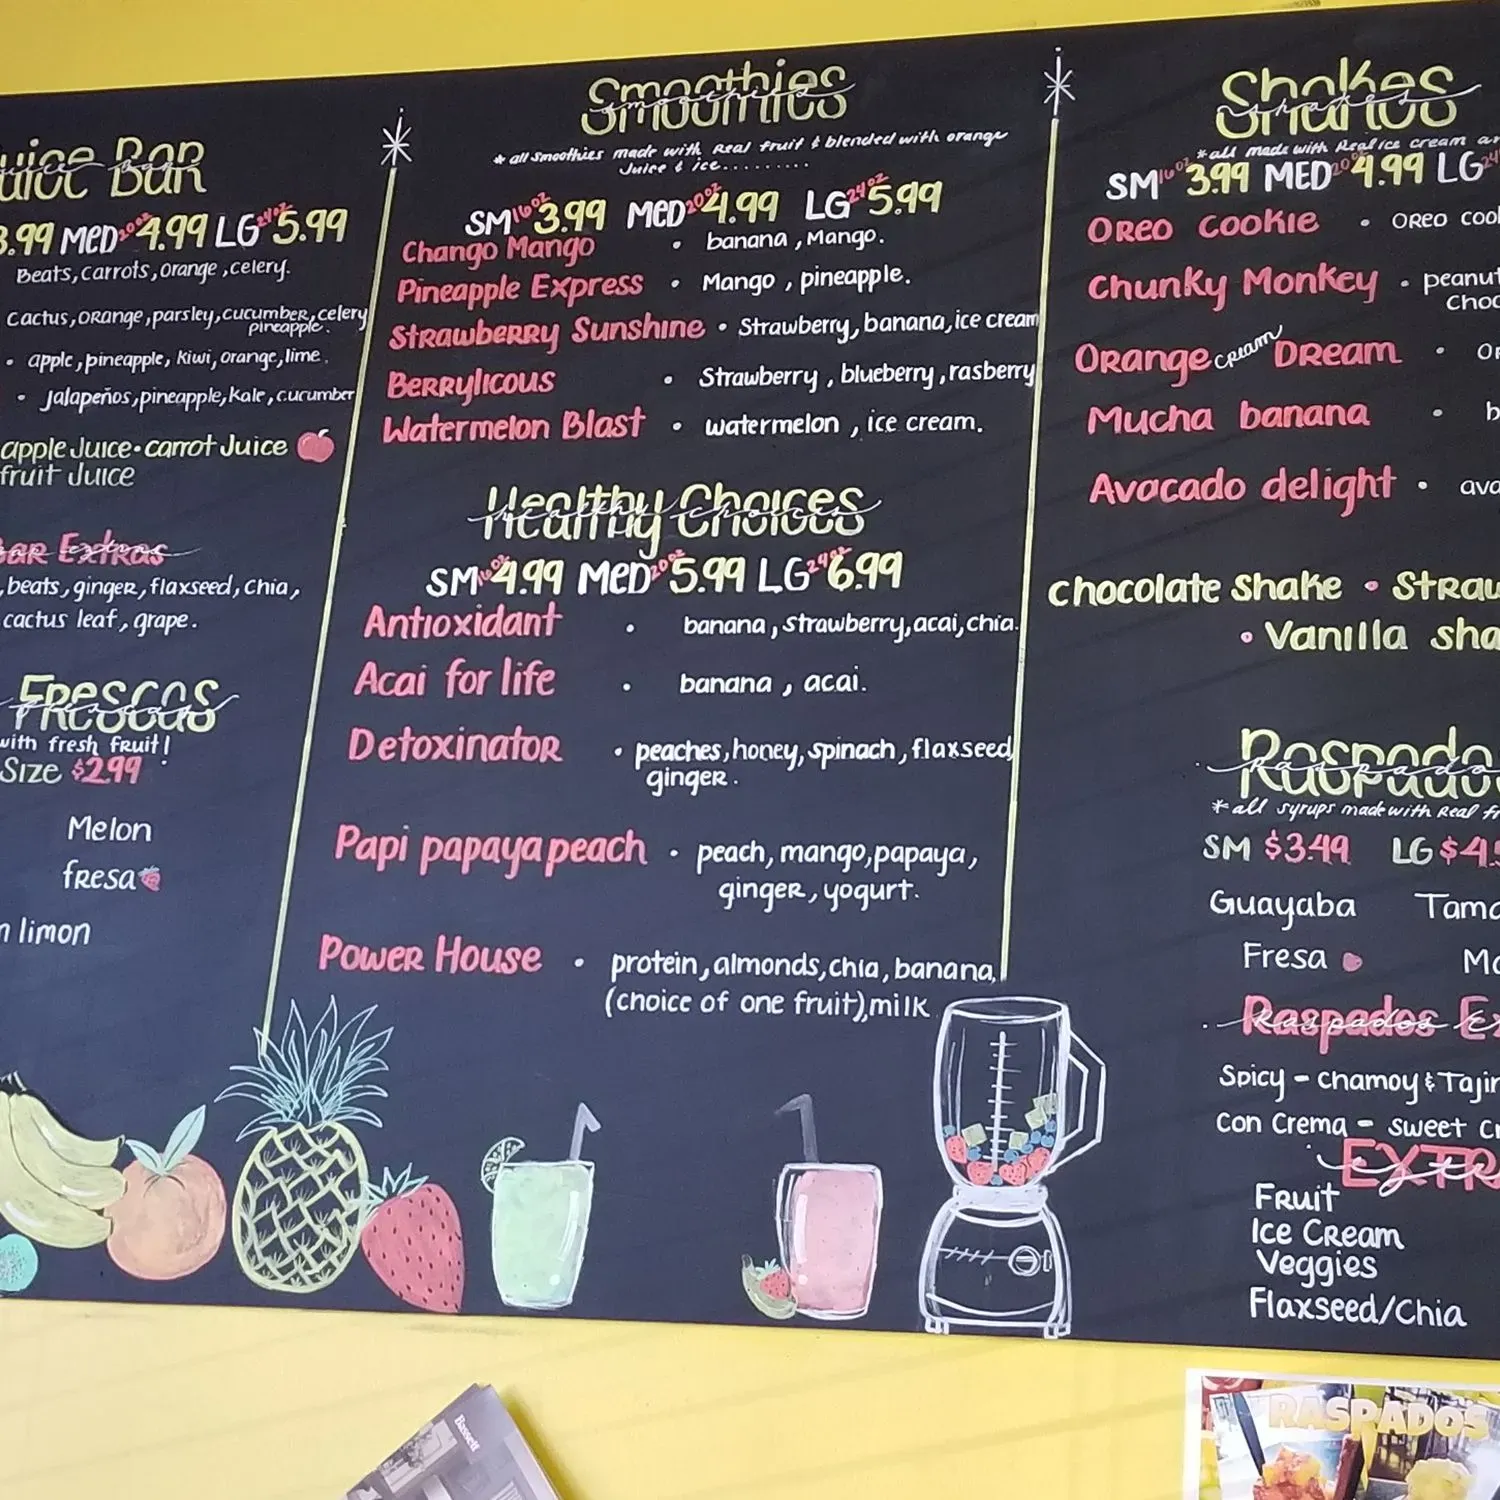 Juice Bar
3.99 MED 20oz 4.99 LG 24oz 5.99
Beats, carrots, orange, celery.
Cactus, orange, parsley, cucumber, celery
pineapple.
• apple, pineapple, kiwi, orange, lime.
• Jalapeños, pineapple, kale, cucumber
apple Juice • carrot Juice
fruit Juice
Bar Extras
bar extras
, beats, ginger, flaxseed, chia,
cactus leaf, grape.
Frescas
with fresh fruit!
Size $2.99
Melon
fresa
limon
Smoothies
smoothies
* all Smoothies made with Real fruit & blended with orange
Juice & ice.........
SM 16oz 3.99 MED 20oz 4.99 LG 24oz 5.99
Chango Mango • banana, Mango.
Pineapple Express • Mango, pineapple.
Strawberry Sunshine • Strawberry, banana, ice cream
Berrylicous • Strawberry, blueberry, rasberry
Watermelon Blast • watermelon, ice cream.
Healthy Choices
healthy choices
SM 16oz 4.99 MED 20oz 5.99 LG 24oz 6.99
Antioxidant • banana, strawberry, acai, chia.
Acai for life • banana, acai.
Detoxinator • peaches, honey, spinach, flaxseed,
ginger.
Papi papaya peach • peach, mango, papaya,
ginger, yogurt.
Power House • protein, almonds, chia, banana,
(choice of one fruit), milk
Shakes
shakes
*all made with Real ice cream
SM 16oz 3.99 MED 20oz 4.99 LG
Oreo Cookie • Oreo
Chunky Monkey • peanut
Orange cream Dream •
Mucha banana •
Avocado delight •
chocolate shake •
• Vanilla
Raspados
raspados
*all syrups made with Real
SM $3.49 LG
Guayaba
Fresa
Raspados
raspados
Spicy - chamoy & Tajin
con Crema - sweet
Extra
Fruit
Ice Cream
Veggies
Flaxseed/Chia
Bassett
RASPADOS